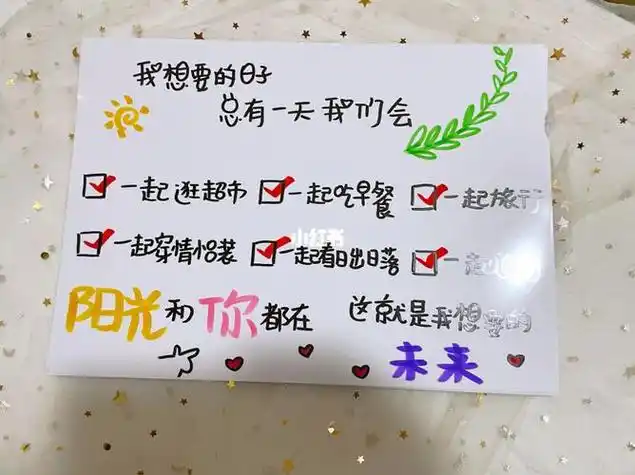 我想要的日子
总有一天我们会
一起逛超市 一起吃早餐 一起旅行
小红书
一起穿情侣装 一起看日出日落 一起
阳光和你都在 这就是我想要的
未来